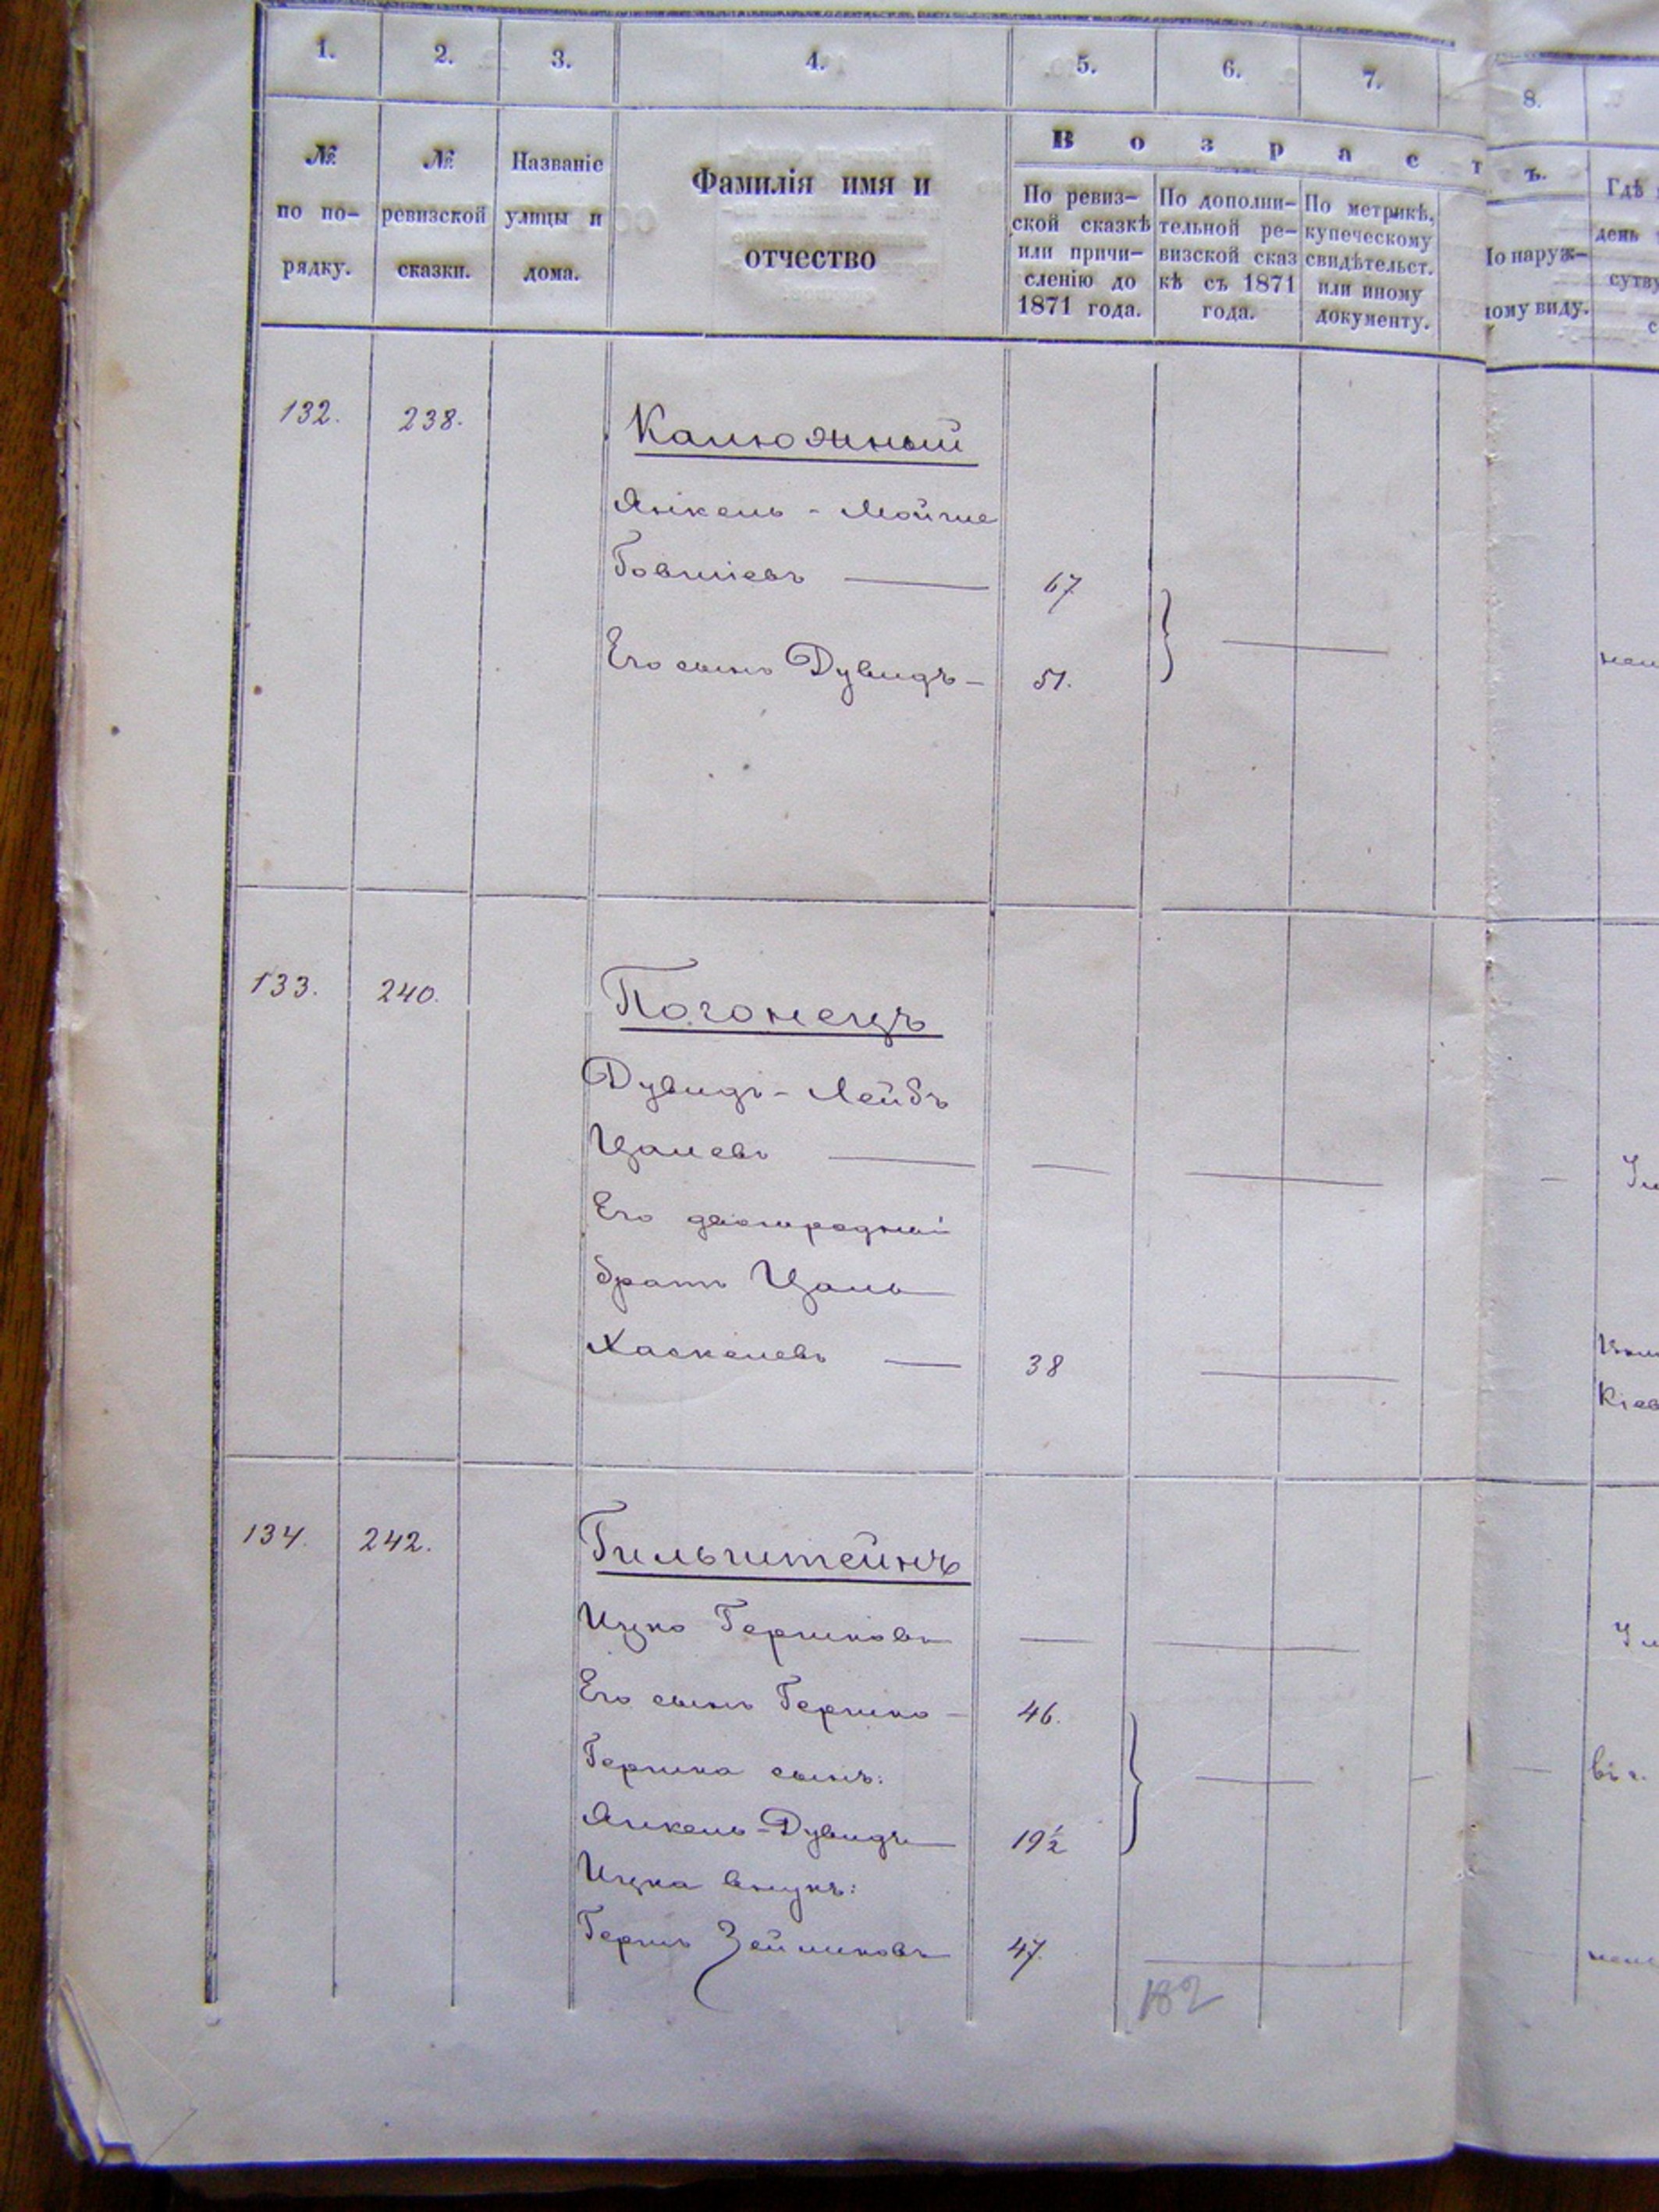 1. 2. 3. 4. 5. 6. 7. 8.
В о з р а с т ъ.
№ по по-рядку.
№ ревизской сказки.
Названіе улицы и дома.
Фамилія имя и отчество
По ревиз-
ской сказкѣ
или причи-
сленію до
1871 года.
По дополни-
тельной ре-
визской сказ
кѣ съ 1871
года.
По метрикѣ,
купеческому
свидѣтельст.
или иному
документу.
По наруж-
ному виду.
Гдѣ
день
сутву
132. 238.
Янкель - Мойше
Говшіевъ — 67
Его сынъ Дувидъ - 51.
133. 240. Погонецъ
Дувидъ - Лейбъ
Цалевъ —
Его двоюродный
братъ Цаль
Хаскелевъ — 38
Кіев
134. 242. Гильштейнъ
Ицко Гершковъ
Его сынъ Гершко - 46.
Гершка сынъ:
Янкель-Дувидъ 19½
Ицка внукъ:
Гершъ Зейликовъ 47.
182